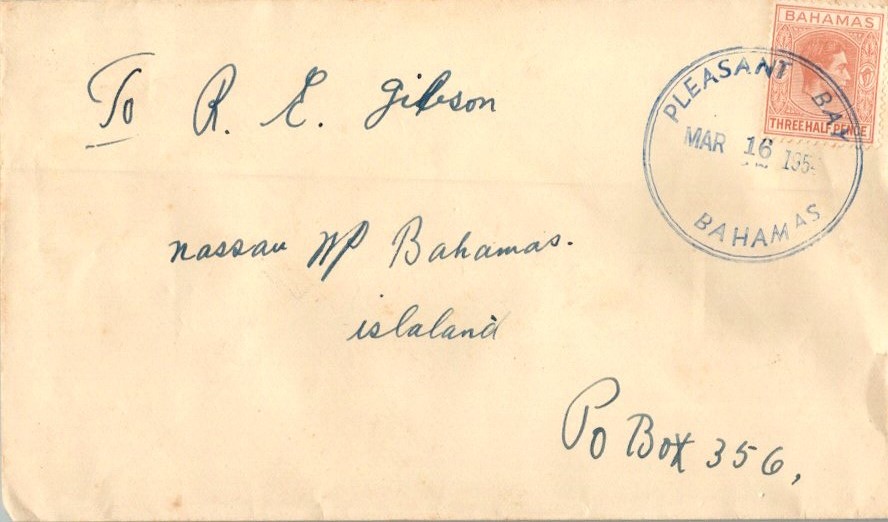 BAHAMAS
THREE HALF PENCE
PLEASANT BAY
MAR 16
BAHAMAS
To R. E. Gibson
nassau NP Bahamas.
islaland
Po Box 356,